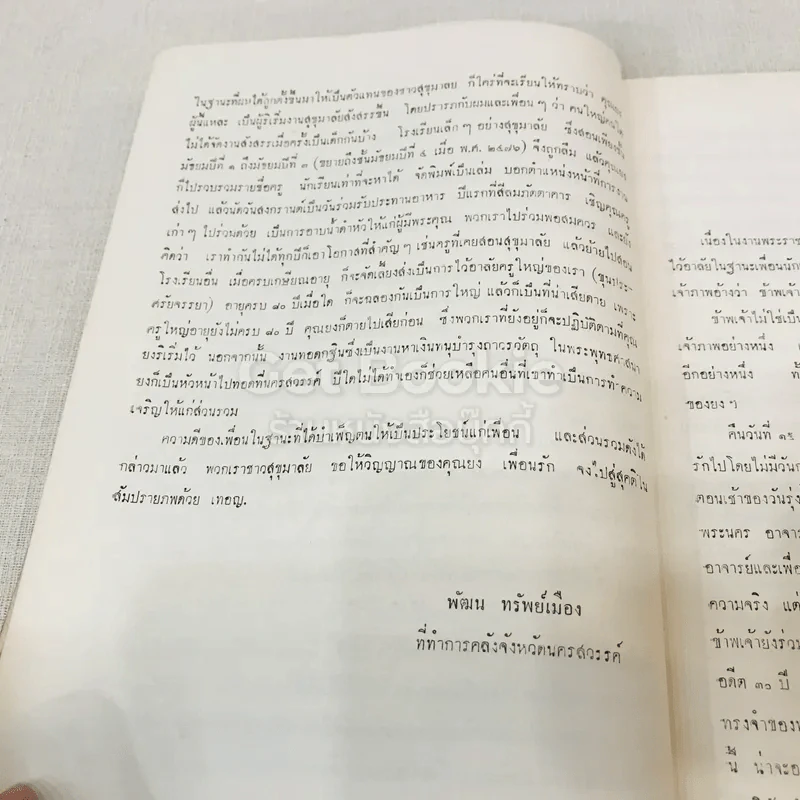 ในฐานะที่ผมได้ถูกตั้งขึ้นมาให้เป็นตัวแทนของชาวสุขุมาลย ก็ใคร่ที่จะเรียนให้ทราบว่า คุณยง
ผู้นี้แหละ เป็นผู้ริเริ่มงานสุขุมาลัยสังสรรขึ้น โดยปรารภกับผมและเพื่อน ๆ ว่า คนใหญ่คนโต
ไม่ได้จัดงานสังสรรเมื่อครั้งเป็นเด็กกันบ้าง โรงเรียนเล็ก ๆ อย่างสุขุมาลัย ซึ่งสอนเพียงชั้น
มัธยมปีที่ ๑ ถึงมัธยมปีที่ ๓ (ขยายถึงชั้นมัธยมปีที่ ๕ เมื่อ พ.ศ. ๒๔๗๖) จึงถูกลืม แล้วคุณยง
ก็ไปรวบรวมรายชื่อครู นักเรียนเท่าที่จะหาได้ จัดพิมพ์เป็นเล่ม บอกตำแหน่งหน้าที่การงาน
ส่งไป แล้วนัดวันสงกรานต์เป็นวันร่วมรับประทานอาหาร ปีแรกที่สีลมภัตตาคาร เชิญคุณครู
เก่า ๆ ไปร่วมด้วย เป็นการอาบน้ำดำหัวให้แก่ผู้มีพระคุณ พวกเราไปร่วมพอสมควร และยัง
คิดว่า เราทำกันไม่ได้ทุกปีก็เอาโอกาสที่สำคัญ ๆ เช่นครูที่เคยสอนสุขุมาลัย แล้วย้ายไปสอน
โรงเรียนอื่น เมื่อครบเกษียณอายุ ก็จะจัดเลี้ยงส่งเป็นการไว้อาลัยครูใหญ่ของเรา (ขุนประ-
ศรัยจรรยา) อายุครบ ๘๐ ปีเมื่อใด ก็จะฉลองกันเป็นการใหญ่ แล้วก็เป็นที่น่าเสียดาย เพราะ
ครูใหญ่อายุยังไม่ครบ ๘๐ ปี คุณยงก็ตายไปเสียก่อน ซึ่งพวกเราที่ยังอยู่ก็จะปฏิบัติตามที่คุณ
ยงริเริ่มไว้ นอกจากนั้น งานทอดกฐินซึ่งเป็นงานหาเงินทนุบำรุงถาวรวัตถุ ในพระพุทธศาสนา
ยงก็เป็นหัวหน้าไปทอดที่นครสวรรค์ ปีใดไม่ได้ทำเองก็ช่วยเหลือคนอื่นที่เขาทำเป็นการทำความ
เจริญให้แก่ส่วนรวม
ความดีของเพื่อนในฐานะที่ได้บำเพ็ญตนให้เป็นประโยชน์แก่เพื่อน และส่วนรวมดังได้
กล่าวมาแล้ว พวกเราชาวสุขุมาลัย ขอให้วิญญาณของคุณยง เพื่อนรัก จงไปสู่สุคติใน
สัมปรายภพด้วย เทอญ.
พัฒน ทรัพย์เมือง
ที่ทำการคลังจังหวัดนครสวรรค์
เนื่องในงานพระราช
ไว้อาลัยในฐานะเพื่อนนัก
เจ้าภาพอ้างว่า ข้าพเจ้า
ข้าพเจ้าไม่ใช่เป็น
เจ้าภาพอย่างหนึ่ง
อีกอย่างหนึ่ง
ของยง ๆ)
คืนวันที่ ๑๕
รักไปโดยไม่มีวันก
ตอนเช้าของวันรุ่ง
พระนคร อาจาร
อาจารย์และเพื่อ
ความจริง แต่
ข้าพเจ้ายังร่วม
อดีต ๓๐ ปี
ทรงจำของ
นี้ น่าจะอ
Get Bookie
ร้านหนังสือคุ๊กกี้